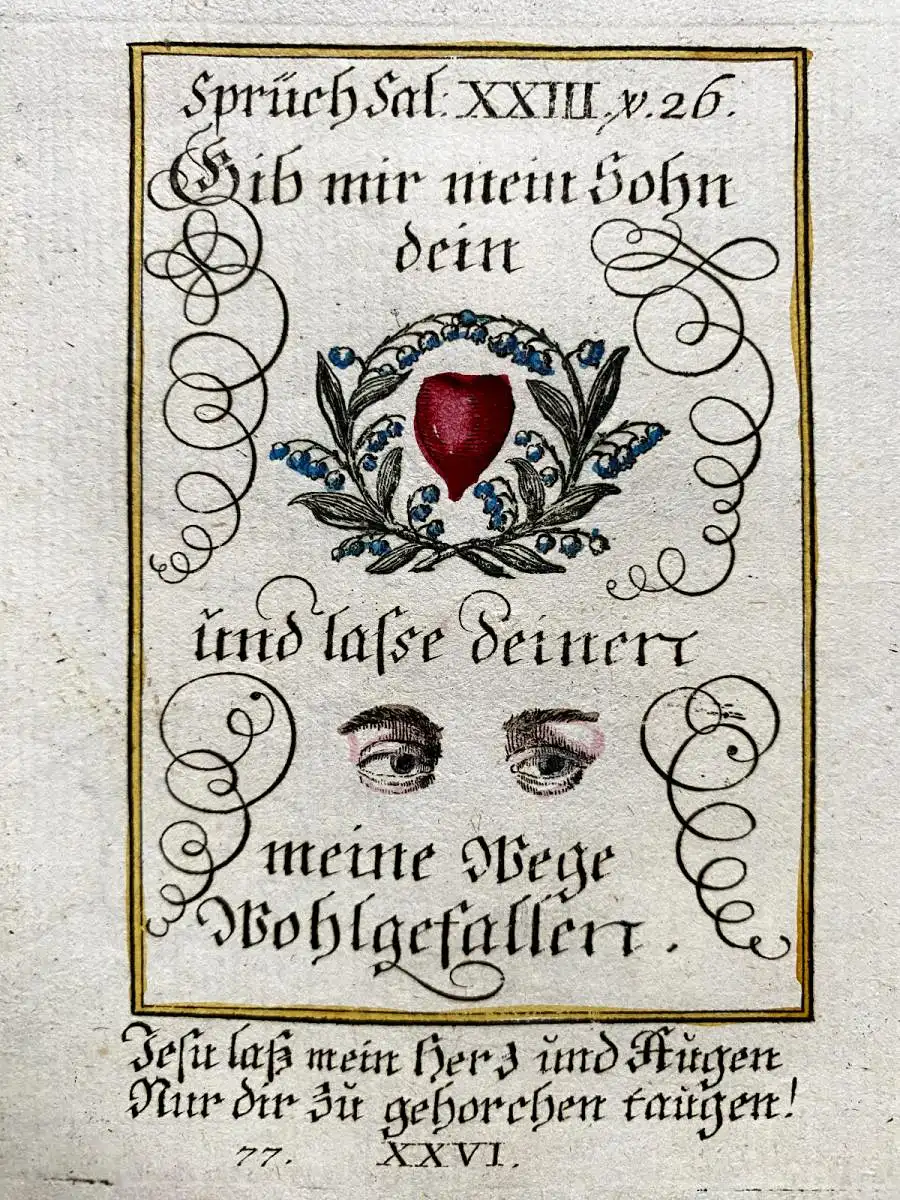 Sprüch Sal: XXIII. v. 26.
Gib mir mein Sohn
dein
ünd lasse deinen
meine Wege
Wohlgefallen.
Jesu laß mein Herz ünd Aügen
Nur dir zü gehorchen taügen!
77. XXVI.